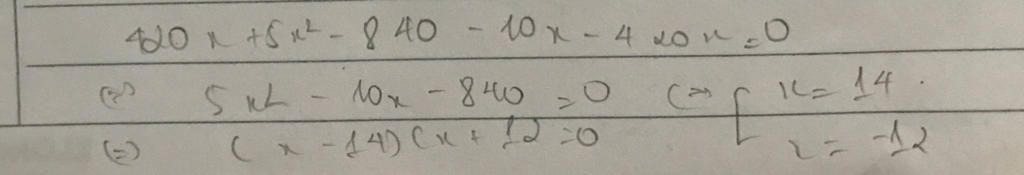 420x + 5x² - 840 - 10x - 420x = 0
(=) 5x² - 10x - 840 = 0 (=> [ x = 14 .
(=) (x - 14) (x + 12 = 0 x = -12